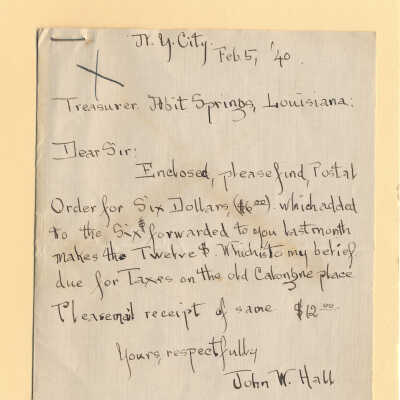 N. Y. City.
Feb. 5, '40.
Treasurer Abit Springs, Louisiana:
Dear Sir:
Enclosed, please find Postal
Order for Six Dollars, ($6.00). which added
to the Six $ forwarded to you last month
makes the Twelve $. Which is to my belief
due for Taxes on the old Calongne place
Please mail receipt of same $12.00
Yours, respectfully
John W. Hall